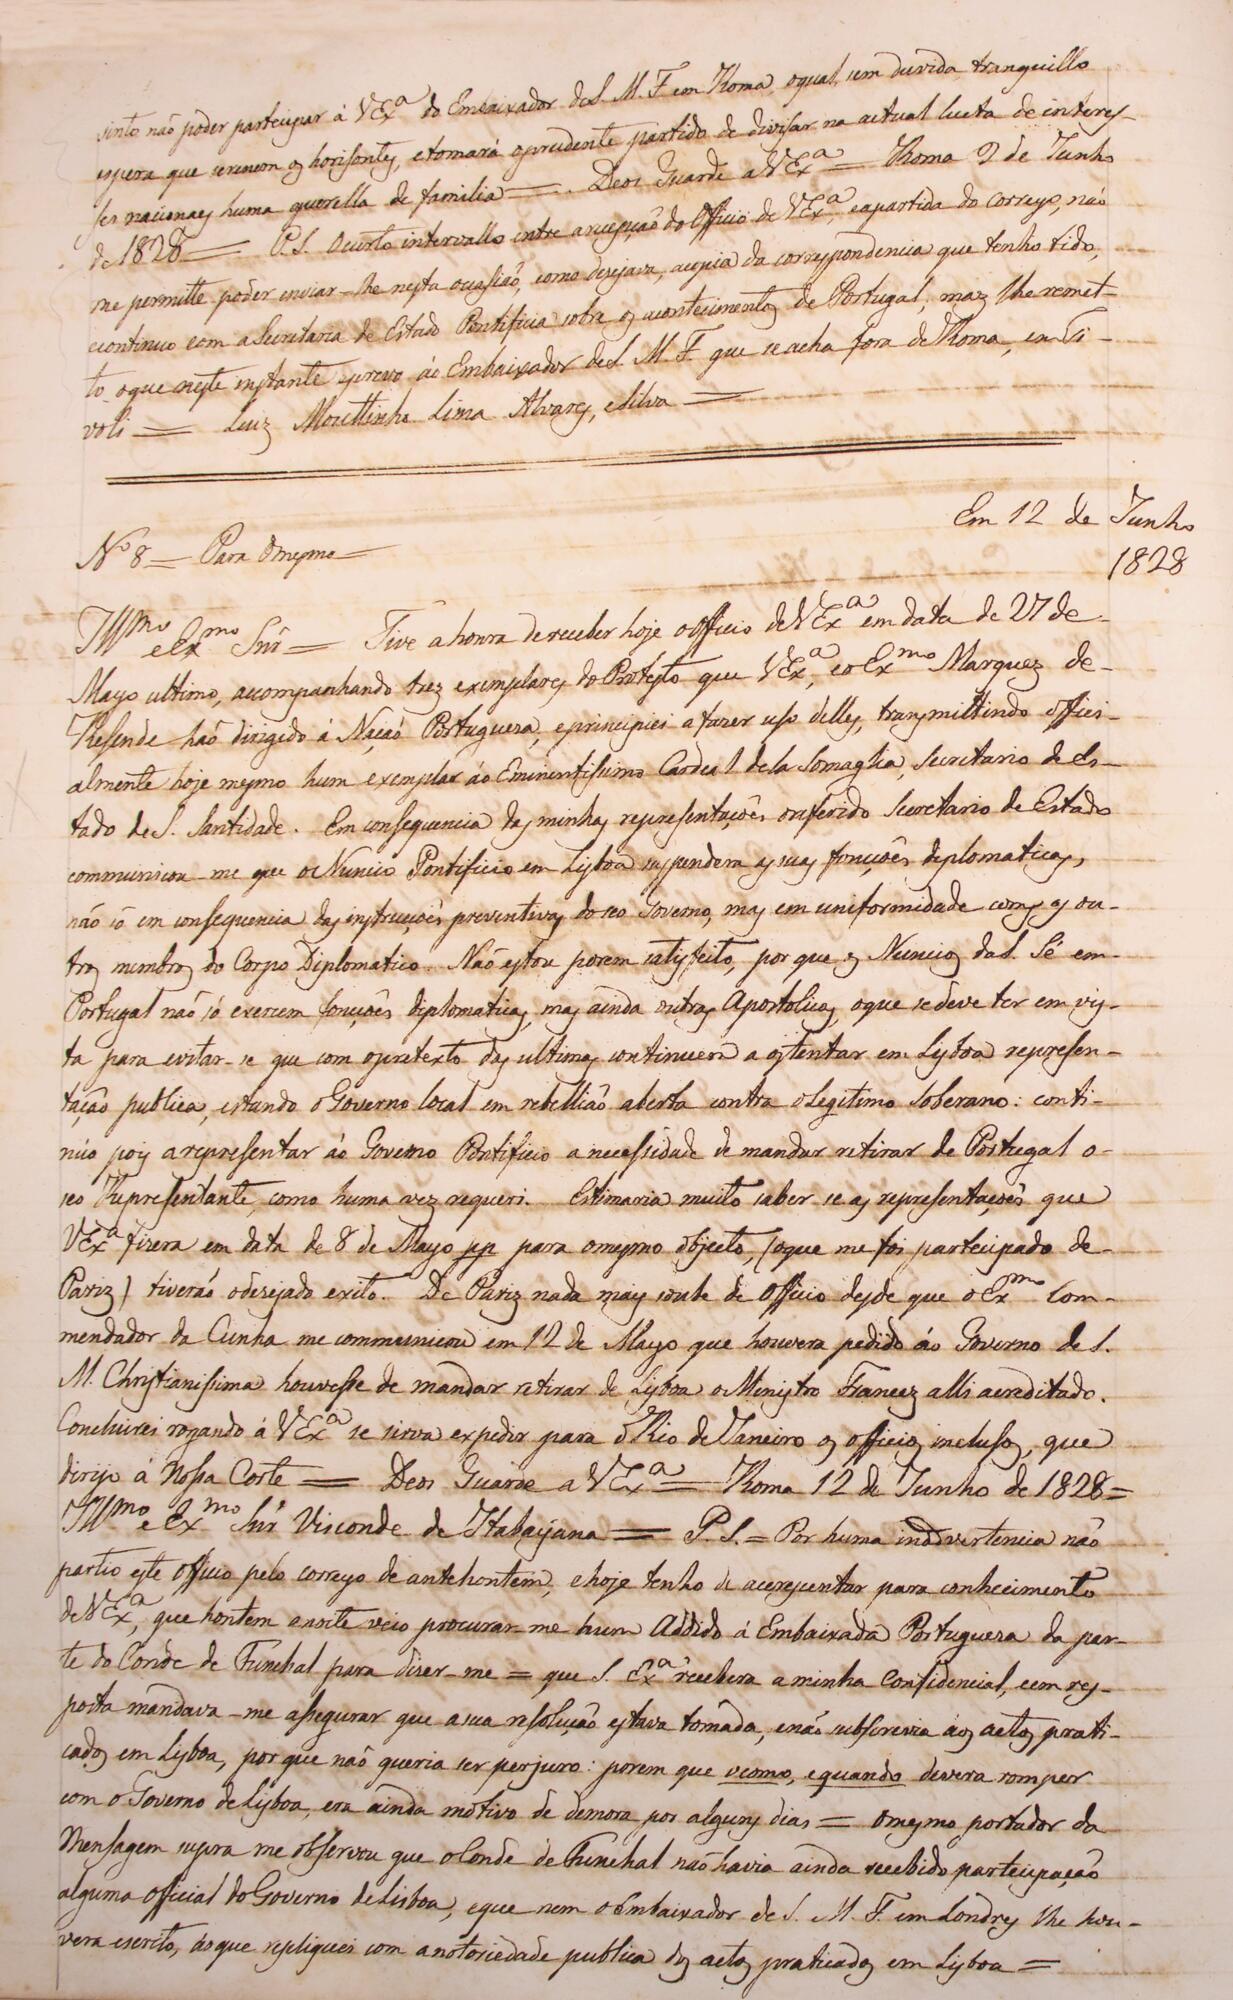 sinto não poder participar á VExª do Embaixador de S. M. F. em Roma, o qual, sem duvida, tranquillo
espera que serenem os horisontes, e tomará o prudente partido de divisar na actual lucta de interes-
ses nacionaes huma querella de familia = Deos Guarde a VExª = Roma 2 de Junho
de 1828 = P.S. O curto intervallo entre a recepção do Officio de VExª, e a partida do correyo, não
me permitte poder enviar-lhe nesta occasião, como desejava, a copia da correspondencia que tenho tido,
e continuo com a Secretaria de Estado Pontificia sobre os acontecimentos de Portugal, mas lhe remet-
to o que neste instante escrevo áo Embaixador de S. M. F. que se acha fora de Roma, em Ti-
voli = Luiz Mouttinho Lima Alvares, e Silva =
Em 12 de Junho
1828
Nº 8 = Para o mesmo =
Illmo e Exmo Snr = Tive a honra de receber hoje o Officio de VExª em data de 27 de
Mayo ultimo, acompanhando trez exemplares do Protesto que VExª, e o Exmo Marquez de
Resende hão dirigido á Nação Portugueza, e principiei a fazer uso delles, transmittindo offici-
almente hoje mesmo hum exemplar áo Eminentissimo Cardeal de la Somaglia, Secretario de Es-
tado de S. Santidade. Em consequencia das minhas representações o referido Secretario de Estado
communicou-me que o Nuncio Pontificio em Lisboa suspendera as suas funções diplomaticas,
não só em consequencia das instrucções preventivas do seo Governo, mas em uniformidade com os ou-
tros membros do Corpo Diplomatico. Não estou porem satisfeito, por que os Nuncios da S. Sé em
Portugal não só exercem funções diplomaticas, mas ainda outras Apostolicas, o que se deve ter em vis-
ta para evitar-se que com o pretexto das ultimas continuem a ostentar em Lisboa represen-
tação publica, estando o Governo local em rebellião aberta contra o legitimo Soberano: conti-
núo pois a representar áo Governo Pontificio a necessidade de mandar retirar de Portugal o
seo Representante, como huma vez requeri. Estimaria muito saber se as representações que
VExª fizera em data de 8 de Mayo pp para o mesmo objecto, (o que me foi participado de
Pariz) tiverão o desejado exito. De Pariz nada mais soube de Officio desde que o Exmo Com-
mendador da Cunha me communicou em 12 de Mayo que houvera pedido áo Governo de S.
M. Christianissima houvesse de mandar retirar de Lisboa o Ministro Francez alli acreditado.
Concluirei rogando á VExª se sirva expedir para o Rio de Janeiro os officios inclusos, que
dirijo á Nossa Corte = Deos Guarde a VExª = Roma 12 de Junho de 1828 =
Illmo e Exmo Snr Visconde de Itabayana = P.S. = Por huma inadvertencia não
partio este Officio pelo correyo de antehontem, e hoje tenho de acrescentar para conhecimento
de VExª, que hontem a noite veio procurar-me hum Addido á Embaixada Portugueza da par-
te do Conde de Funchal para dizer-me = que S. Exª recebera a minha Confidencial, e em res-
posta mandava-me assegurar que a sua resolução estava tomada, e não subscrevia áos actos prati-
cados em Lisboa, por que não queria ser perjuro: porem que o como, e quando devera romper
com o Governo de Lisboa, era ainda motivo de demora por alguns dias = O mesmo portador da
Mensagem supra me observou que o Conde de Funchal não havia ainda recebido participação
alguma official do Governo de Lisboa, e que nem o Embaixador de S. M. F. em Londres lhe hou-
vera escrito, áo que repliquei com a notoriedade publica dos actos praticados em Lisboa =